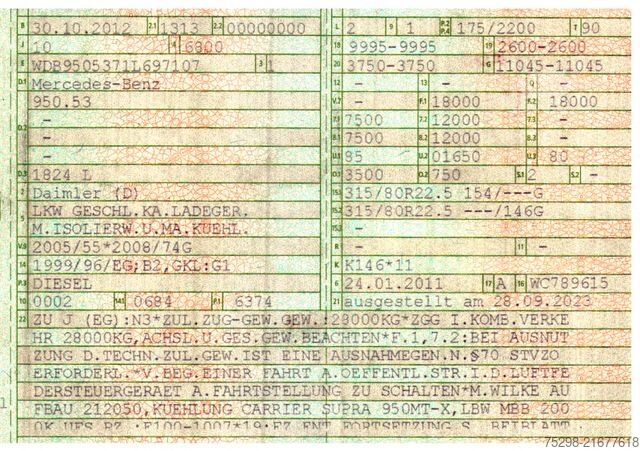 B 30.10.2012 2.1 1313 2.2 00000000
J 10 4 6900
E WDB9505371L697107 3 1
D.1 Mercedes-Benz
950.53
D.2 -
-
-
D.3 1824 L
2 Daimler (D)
5 LKW GESCHL.KA.LADEGER.
M.ISOLIERW.U.MA.KUEHL.
V.9 2005/55*2008/74G
14 1999/96/EG;B2,GKL:G1
P.3 DIESEL
10 0002 14.1 0684 P.1 6374
L 2 9 1 P.2 P.4 175/2200 T 90
18 9995-9995 19 2600-2600
20 3750-3750 G 11045-11045
12 - 13 - Q -
V.7 - F.1 18000 F.2 18000
7.1 7500 7.2 12000 7.3 -
8.1 7500 8.2 12000 8.3 -
U.1 85 U.2 01650 U.3 80
O.1 3500 O.2 750 S.1 2 S.2 -
15.1 315/80R22.5 154/---G
15.2 315/80R22.5 ---/146G
15.3 -
R - 11 -
K K146*11
6 24.01.2011 17 A 16 WC789615
21 ausgestellt am 28.09.2023
22 ZU J (EG):N3*ZUL.ZUG-GEW.GEW.:28000KG*ZGG I.KOMB.VERKE
HR 28000KG,ACHSL.U.GES.GEW.BEACHTEN*F.1,7.2:BEI AUSNUT
ZUNG D.TECHN.ZUL.GEW.IST EINE AUSNAHMEGEN.N.§70 STVZO
ERFORDERL.*V.BEG.EINER FAHRT A.OEFFENTL.STR.I.D.LUFTFE
DERSTEUERGERAET A.FAHRTSTELLUNG ZU SCHALTEN*M.WILKE AU
FBAU 212050,KUEHLUNG CARRIER SUPRA 950MT-X,LBW MBB 200
0K UFS RZ.:E100-1007*19:EZ ENT FORTSETZUNG S. BEIBLATT
75298-21677618